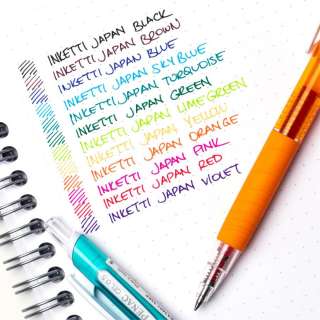 INKETTI JAPAN BLACK
INKETTI JAPAN BROWN
INKETTI JAPAN BLUE
INKETTI JAPAN SKY BLUE
INKETTI JAPAN TURQUOISE
INKETTI JAPAN GREEN
INKETTI JAPAN LIME GREEN
INKETTI JAPAN YELLOW
INKETTI JAPAN ORANGE
INKETTI JAPAN PINK
INKETTI JAPAN RED
INKETTI JAPAN VIOLET
PENAC